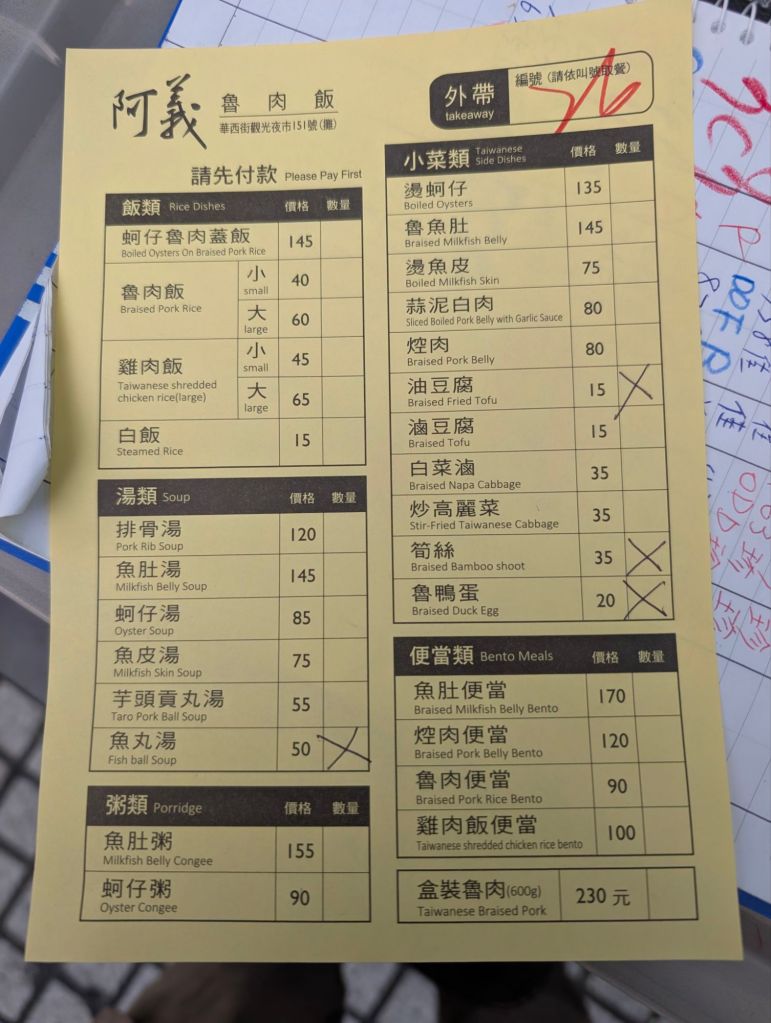 阿義 魯肉飯
華西街觀光夜市151號(攤)
外帶 takeaway
編號 (請依叫號取餐)
26
請先付款 Please Pay First
飯類 Rice Dishes 價格 數量
蚵仔魯肉蓋飯 145
Boiled Oysters On Braised Pork Rice
魯肉飯
Braised Pork Rice
小 small 40
大 large 60
雞肉飯
Taiwanese shredded
chicken rice(large)
小 small 45
大 large 65
白飯 15
Steamed Rice
湯類 Soup 價格 數量
排骨湯 120
Pork Rib Soup
魚肚湯 145
Milkfish Belly Soup
蚵仔湯 85
Oyster Soup
魚皮湯 75
Milkfish Skin Soup
芋頭貢丸湯 55
Taro Pork Ball Soup
魚丸湯 50
Fish ball Soup
粥類 Porridge 價格 數量
魚肚粥 155
Milkfish Belly Congee
蚵仔粥 90
Oyster Congee
小菜類 Taiwanese Side Dishes 價格 數量
燙蚵仔 135
Boiled Oysters
魯魚肚 145
Braised Milkfish Belly
燙魚皮 75
Boiled Milkfish Skin
蒜泥白肉 80
Sliced Boiled Pork Belly with Garlic Sauce
焢肉 80
Braised Pork Belly
油豆腐 15
Braised Fried Tofu
滷豆腐 15
Braised Tofu
白菜滷 35
Braised Napa Cabbage
炒高麗菜 35
Stir-Fried Taiwanese Cabbage
筍絲 35
Braised Bamboo shoot
魯鴨蛋 20
Braised Duck Egg
便當類 Bento Meals 價格 數量
魚肚便當 170
Braised Milkfish Belly Bento
焢肉便當 120
Braised Pork Belly Bento
魯肉便當 90
Braised Pork Rice Bento
雞肉飯便當 100
Taiwanese shredded chicken rice bento
盒裝魯肉(600g) 230 元
Taiwanese Braised Pork